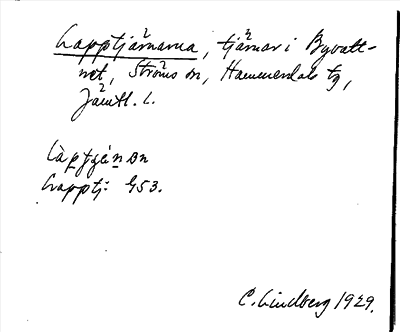 Lapptjärnarna, tjärnar i Byvatt-
net, Ströms sn, Hammerdals tg,
Jämtl. l.
Làptjǽnɒn
Lapptj: G53.
C. Lindberg 1929.